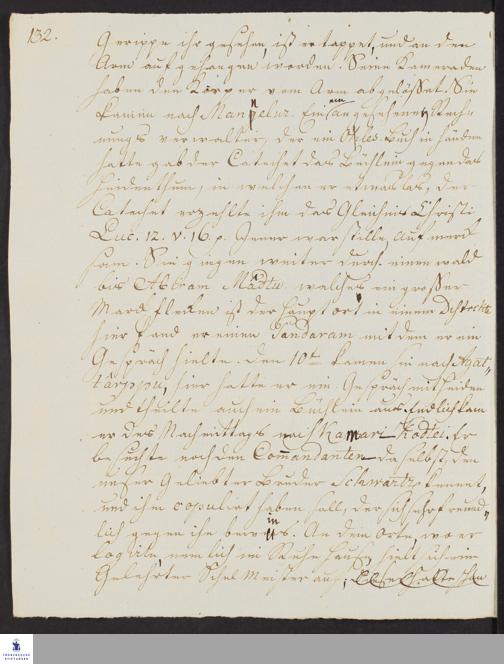 132.
Gerippe ihr gesehen, ist ertappet, und an den
Arm aufgehangen worden. Seine Kameraden
haben den Körper vom Arm abgelöset. Sie
kamen nach Manpelur. Ein angesehener Rech-
nungs verwalter, der ein Oles-Buch in Händen
hatte gab der Catechet das Büchlein gegen das
Heidenthum, in welchen er etwas las, der
Catechet erzehlte ihm das Gleichnis Christi
Luc. 12. v. 16. p. Jener war stille, aufmerk
sam. Sie giengen weiter durch einen wald
bis Abram Madtu welches ein grosser
Marckflecken ist der Hauptort in einem Districkte
hier fand er einen Pandaram mit dem er ein
Gespräch hielte. den 10ten kamen sie nach Agat-
tarppu, hier hatte er ein Gespräch mit Heiden
und theilte auch ein Büchlein aus. Endlich kam
er des Nachmittags nach Kamari Kodtei. Er
besuchte noch den Commandanten daselbst, den
unser Geliebter Bruder Schwartz kennet,
und ihn copulirt haben soll, der sich sehr freund-
lich gegen ihn bewies. An dem Orte, wo er
logirte, nemlich im Ruhe Hause, hielt sich ein
Gelehrter Schul Meister auf,
FRANCKESCHE
STIFTUNGEN